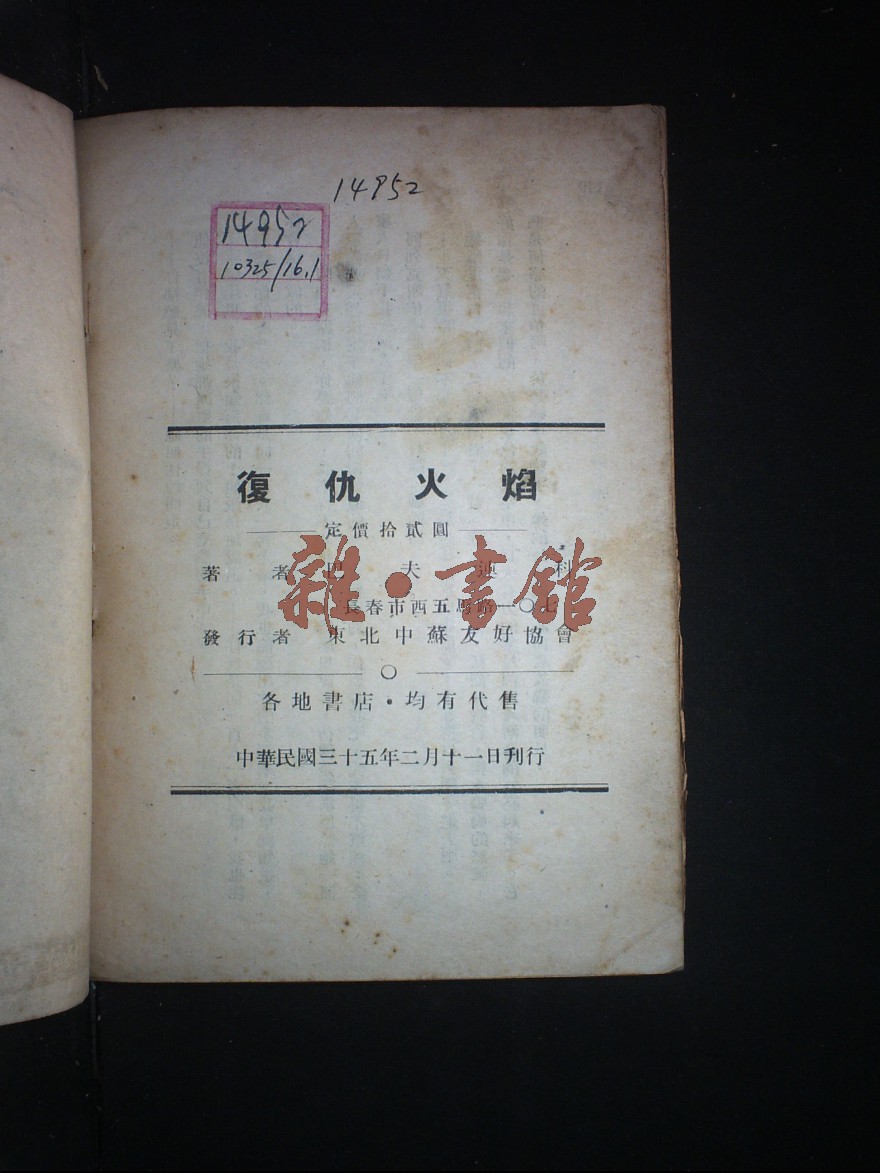 14952
14952
10325/16.1
復仇火焰
定價拾貳圓
著者 巴夫 科
長春市西五馬路一〇七
發行者 東北中蘇友好協會
〇
各地書店・均有代售
中華民國三十五年二月十一日刊行
雜・書館